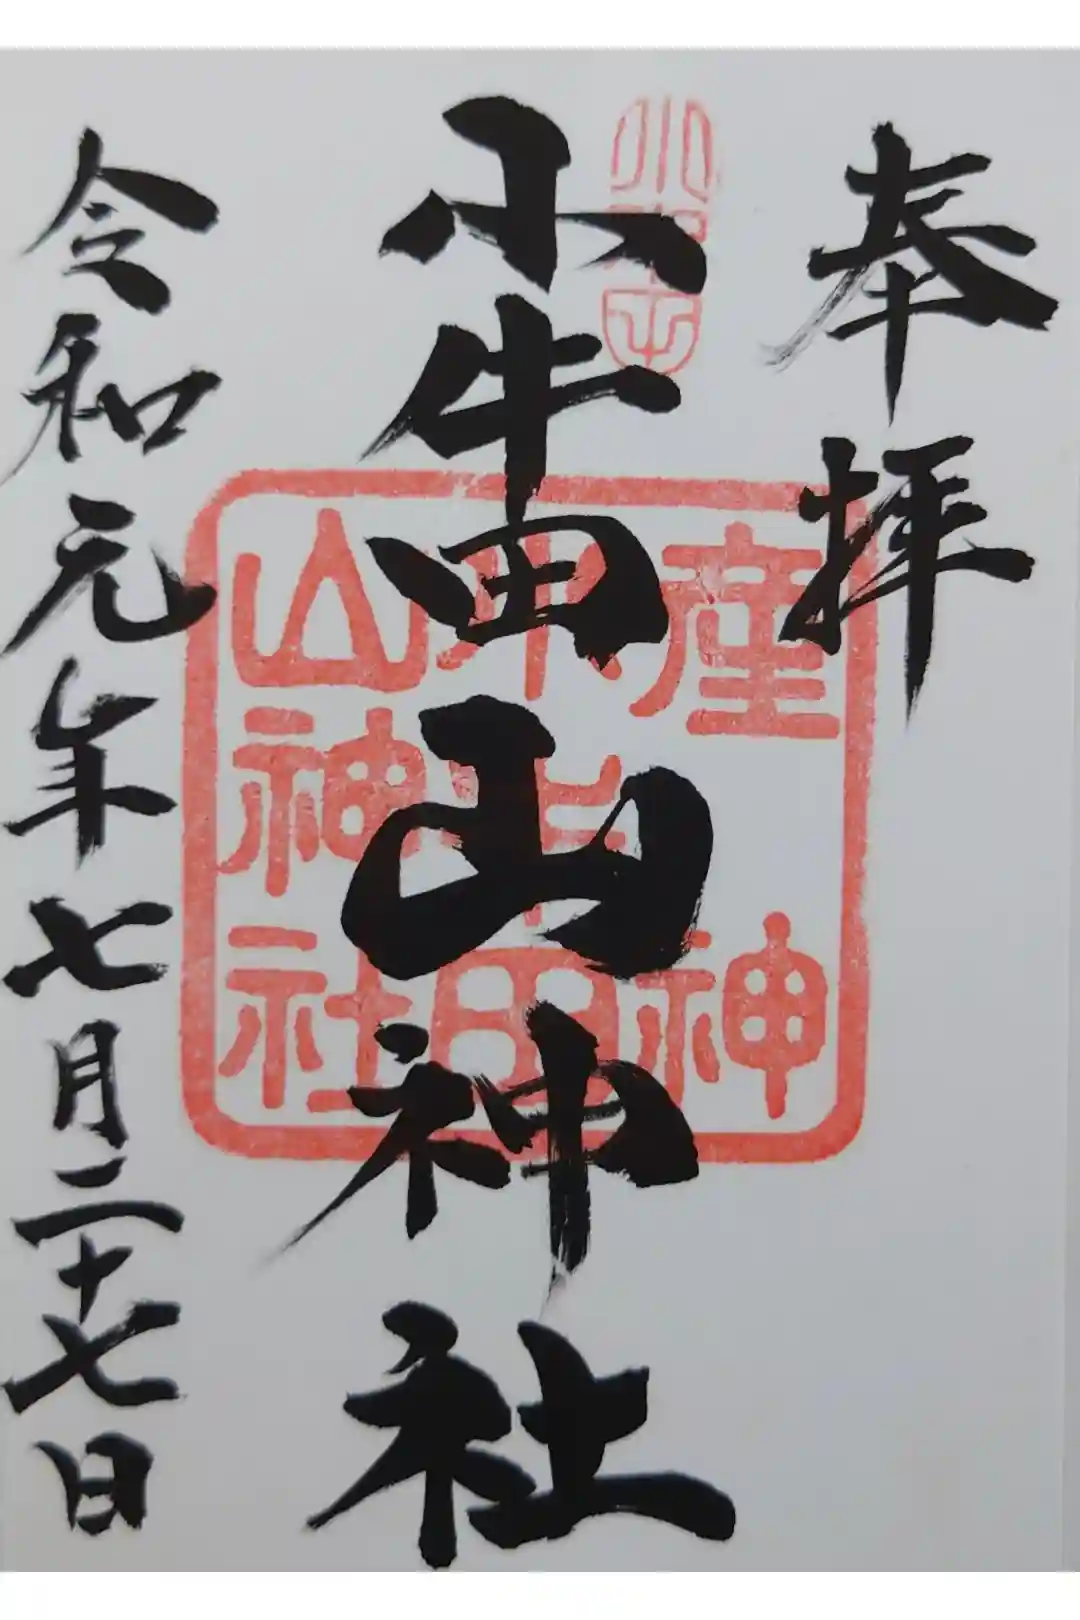 奉拝
小牛田山神社
令和元年七月二十七日
産神
小牛田
山神社